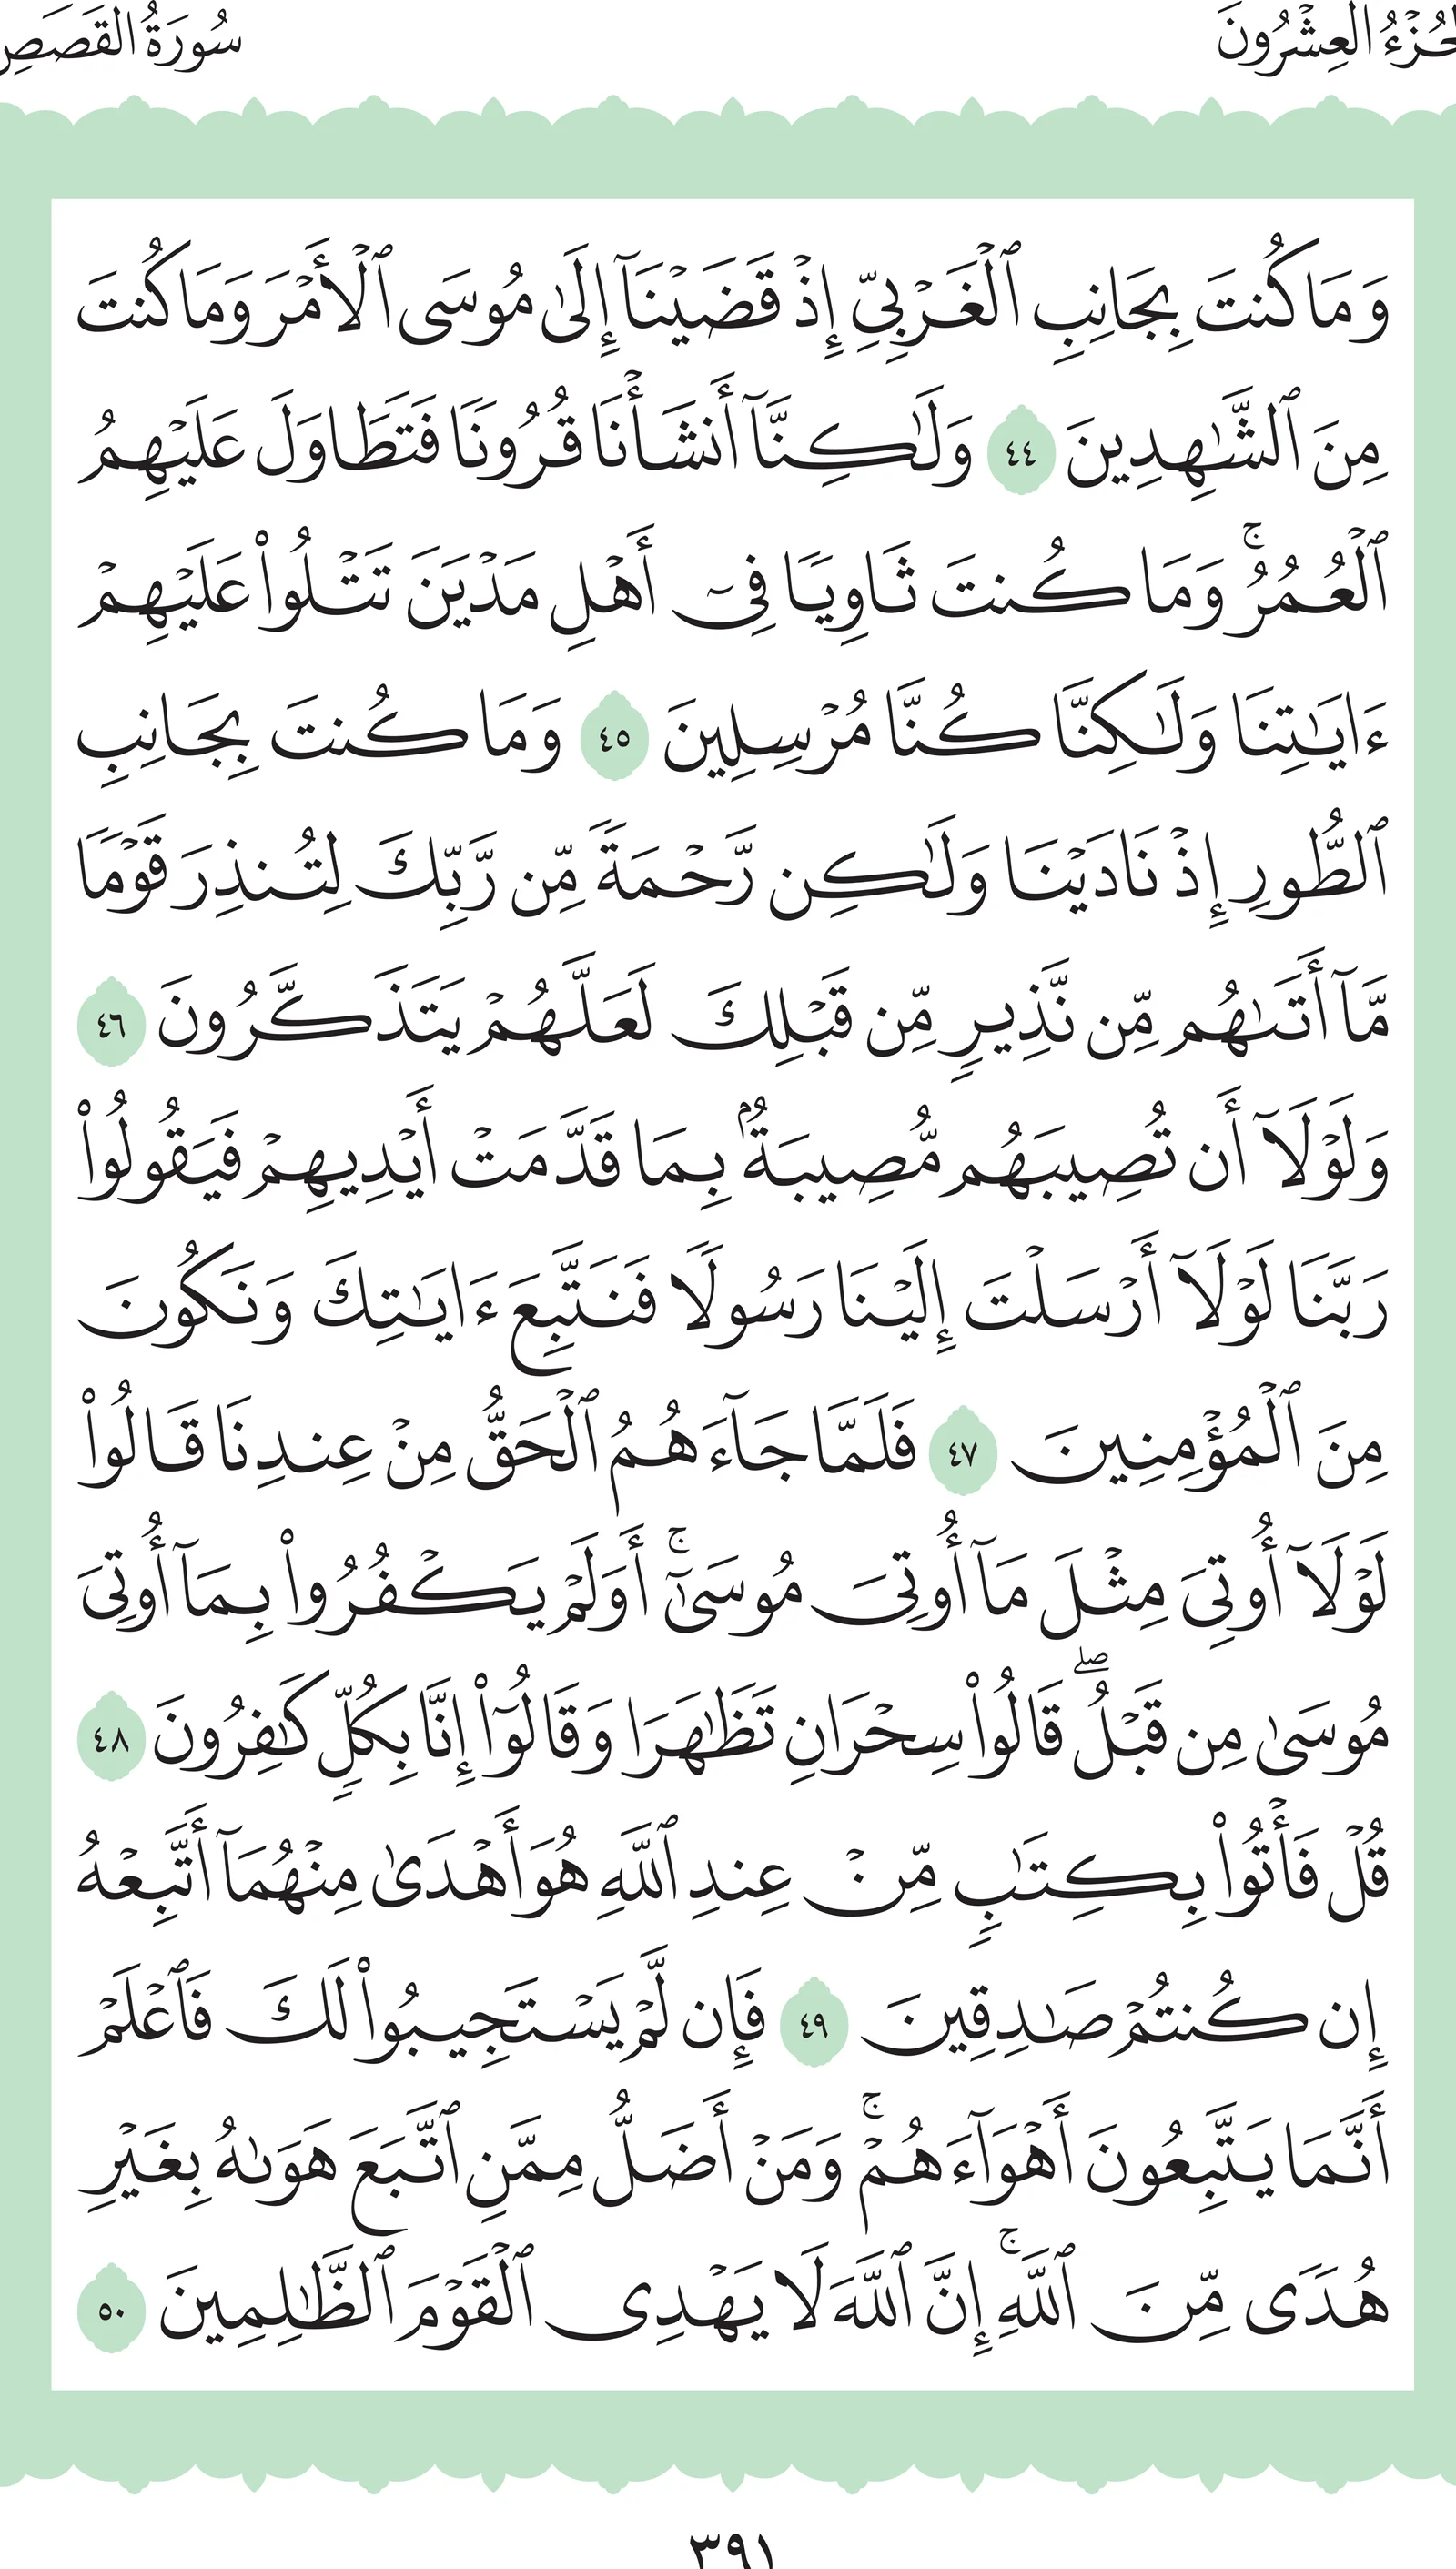 سُورَةُ القَصَصِ
الجُزْءُ العِشْرُونَ
وَمَا كُنتَ بِجَانِبِ ٱلْغَرْبِىِّ إِذْ قَضَيْنَآ إِلَىٰ مُوسَى ٱلْأَمْرَ وَمَا كُنتَ
مِنَ ٱلشَّـٰهِدِينَ ٤٤ وَلَـٰكِنَّآ أَنشَأْنَا قُرُونًا فَتَطَاوَلَ عَلَيْهِمُ
ٱلْعُمُرُ ۚ وَمَا كُنتَ ثَاوِيًا فِىٓ أَهْلِ مَدْيَنَ تَتْلُوا۟ عَلَيْهِمْ
ءَايَـٰتِنَا وَلَـٰكِنَّا كُنَّا مُرْسِلِينَ ٤٥ وَمَا كُنتَ بِجَانِبِ
ٱلطُّورِ إِذْ نَادَيْنَا وَلَـٰكِن رَّحْمَةً مِّن رَّبِّكَ لِتُنذِرَ قَوْمًا
مَّآ أَتَىٰهُم مِّن نَّذِيرٍ مِّن قَبْلِكَ لَعَلَّهُمْ يَتَذَكَّرُونَ ٤٦
وَلَوْلَآ أَن تُصِيبَهُم مُّصِيبَةٌۢ بِمَا قَدَّمَتْ أَيْدِيهِمْ فَيَقُولُوا۟
رَبَّنَا لَوْلَآ أَرْسَلْتَ إِلَيْنَا رَسُولًا فَنَتَّبِعَ ءَايَـٰتِكَ وَنَكُونَ
مِنَ ٱلْمُؤْمِنِينَ ٤٧ فَلَمَّا جَآءَهُمُ ٱلْحَقُّ مِنْ عِندِنَا قَالُوا۟
لَوْلَآ أُوتِىَ مِثْلَ مَآ أُوتِىَ مُوسَىٰٓ ۚ أَوَلَمْ يَكْفُرُوا۟ بِمَآ أُوتِىَ
مُوسَىٰ مِن قَبْلُ ۖ قَالُوا۟ سِحْرَانِ تَظَـٰهَرَا وَقَالُوٓا۟ إِنَّا بِكُلٍّ كَـٰفِرُونَ ٤٨
قُلْ فَأْتُوا۟ بِكِتَـٰبٍ مِّنْ عِندِ ٱللَّهِ هُوَ أَهْدَىٰ مِنْهُمَآ أَتَّبِعْهُ
إِن كُنتُمْ صَـٰدِقِينَ ٤٩ فَإِن لَّمْ يَسْتَجِيبُوا۟ لَكَ فَٱعْلَمْ
أَنَّمَا يَتَّبِعُونَ أَهْوَآءَهُمْ ۚ وَمَنْ أَضَلُّ مِمَّنِ ٱتَّبَعَ هَوَىٰهُ بِغَيْرِ
هُدًى مِّنَ ٱللَّهِ ۚ إِنَّ ٱللَّهَ لَا يَهْدِى ٱلْقَوْمَ ٱلظَّـٰلِمِينَ ٥٠
٣٩١